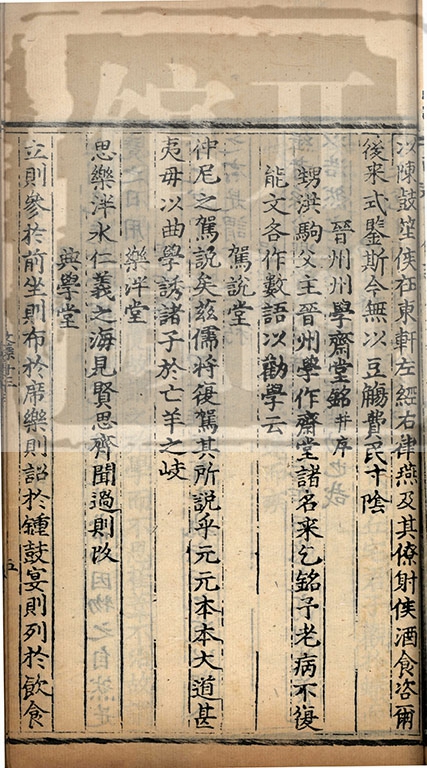 以陳鼓笙侯在東軒左經右律燕及其僚射侯酒食咨爾
後来式鑒斯今無以豆觴費民寸陰
晉州州學齋堂銘并序
甥洪駒父主晉州學作齋堂諸名来乞銘予老病不復
能文各作數語以勸學云
駕說堂
仲尼之駕說矣兹儒将復駕其所說乎元元本本大道甚
夷毋以曲學誘諸子於亡羊之岐
樂泮堂
思樂泮水仁義之海見賢思齊聞過則改
典學堂
立則參於前坐則布於席樂則詔於鍾鼓宴則列於飲食
五